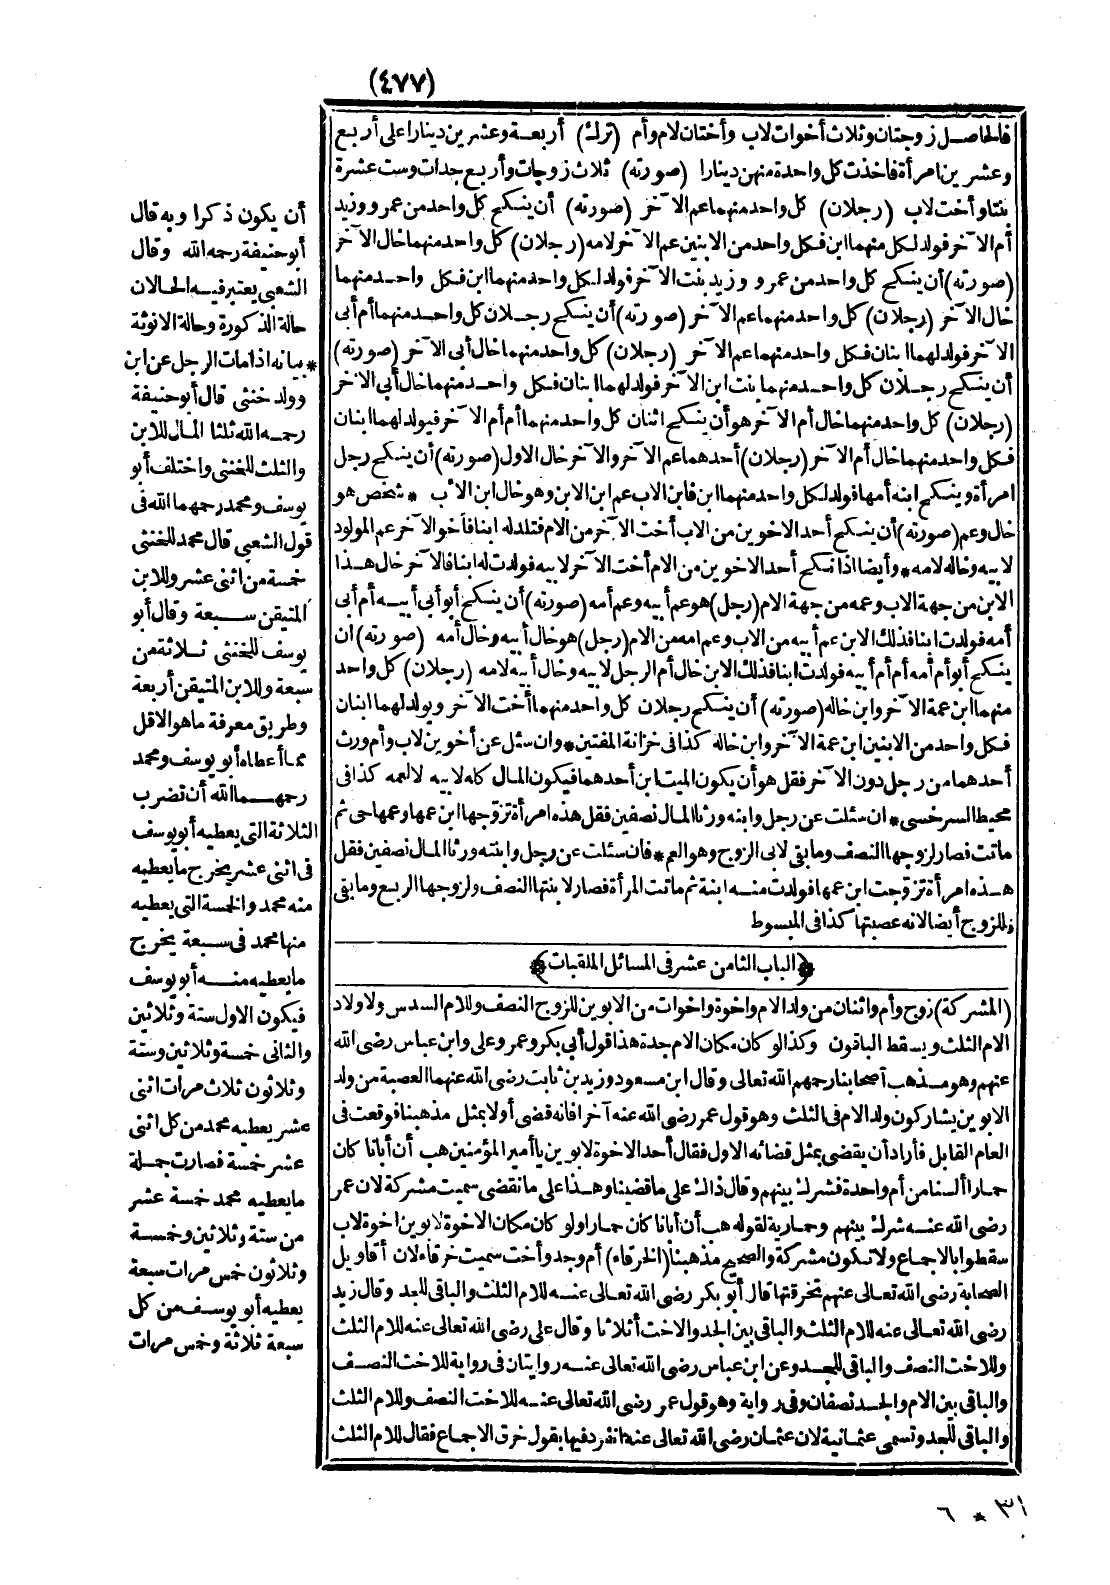 (٤٧٧)
فالحاصل زوجتان وثلاث أخوات لاب وأختان لام وأم (ترك) أربعة وعشرين دينارا على أربع
وعشرين امرأة فاخذت كل واحدة منهن دينارا (صورته) ثلاث زوجات وأربع جدات وست عشرة
بنتا وأخت لاب (رجلان) كل واحد منهما عم الآخر (صورته) أن ينكح كل واحد من عمرو وزيد
أم الآخر فولد لكل منهما ابن فكل واحد من الابنين عم الآخر لامه (رجلان) كل واحد منهما خال الآخر
(صورته) أن ينكح كل واحد من عمرو وزيد بنت الآخر فولد لكل واحد منهما ابن فكل واحد منهما
خال الآخر (رجلان) كل واحد منهما عم الآخر (صورته) أن ينكح رجلان كل واحد منهما أم أبى
الآخر فولد لهما ابنان فكل واحد منهما عم الآخر (رجلان) كل واحد منهما خال أبى الآخر (صورته)
أن ينكح رجلان كل واحد منهما بنت ابن الآخر فولد لهما ابنان فكل واحد منهما خال أبى الآخر
(رجلان) كل واحد منهما خال أم الآخر هو أن ينكح اثنان كل واحد منهما أم أم الآخر فيولد لهما ابنان
فكل واحد منهما خال أم الآخر (رجلان) أحدهما عم الآخر والآخر خال الاول (صورته) أن ينكح رجل
امرأة وينكح ابنه أمها فولد لكل واحد منهما ابن فابن الاب عم ابن الابن وهو خال ابن الاب * شخص هو
خال وعم (صورته) أن ينكح أحد الاخوين من الاب أخت الآخر من الام فتلد له ابنا فأخو الآخر عم المولود
لابيه وخاله لامه * وأيضا اذا نكح أحد الاخوين من الام أخت الآخر لابيه فولدت له ابنا فالآخر خال هذا
الابن من جهة الاب وعمه من جهة الام (رجل) هو عم أبيه وعم أمه (صورته) أن ينكح أبو أبى أبيه أم أبى
أمه فولدت ابنا فذلك الابن عم أبيه من الاب وعم امه من الام (رجل) هو خال أبيه وخال أمه (صورته) ان
ينكح أبو أم أمه أم أم أبيه فولدت ابنا فذلك الابن خال أم الرجل لابيه وخال أبيه لامه (رجلان) كل واحد
منهما ابن عمة الآخر وابن خاله (صورته) أن ينكح رجلان كل واحد منهما أخت الآخر ويولد لهما ابنان
فكل واحد من الابنين ابن عمة الآخر وابن خاله كذا فى خزانة المفتين * وان سئل عن أخوين لاب وأم ورث
أحدهما من رجل دون الآخر فقل هو أن يكون الميت ابن أحدهما فيكون المال كله لابيه لا لعمه كذا فى
محيط السرخسى * ان سئلت عن رجل وابنه ورثا المال نصفين فقل هذه امرأة تزوجها ابن عمها وعمها حى ثم
ماتت فصار لزوجها النصف وما بقى لابى الزوج وهو العم * فان سئلت عن رجل وابنته ورثا المال نصفين فقل
هذه امرأة تزوجت ابن عمها فولدت منه ابنة ثم ماتت المرأة فصار لابنتها النصف ولزوجها الربع وما بقى
للزوج أيضا لانه عصبتها كذا فى المبسوط
*(الباب الثامن عشر فى المسائل الملقبات)*
(المشركة) زوج وأم واثنان من ولد الام واخوة واخوات من الابوين للزوج النصف وللام السدس ولاولاد
الام الثلث ويسقط الباقون وكذا لو كان مكان الام جدة هذا قول أبى بكر وعمر وعلى وابن عباس رضى الله
عنهم وهو مذهب أصحابنا رحمهم الله تعالى وقال ابن مسعود وزيد بن ثابت رضى الله عنهما العصبة من ولد
الابوين يشاركون ولد الام فى الثلث وهو قول عمر رضى الله عنه آخرا فانه قضى أولا بمثل مذهبنا فوقعت فى
العام القابل فأراد أن يقضى بمثل قضائه الاول فقال أحد الاخوة لابوين يا أمير المؤمنين هب أن أبانا كان
حمارا ألسنا من أم واحدة فشرك بينهم وقال ذاك على ما قضينا وهذا على ما نقضى سميت مشركة لان عمر
رضى الله عنه شرك بينهم وحمارية لقوله هب أن أبانا كان حمارا ولو كان مكان الاخوة لابوين اخوة لاب
سقطوا بالاجماع ولا تكون مشركة والصحيح مذهبنا (الخرقاء) أم وجد وأخت سميت خرقاء لان أقاويل
الصحابة رضى الله تعالى عنهم تخرقتها قال أبو بكر رضى الله تعالى عنه للام الثلث والباقى للجد وقال زيد
رضى الله تعالى عنه للام الثلث والباقى بين الجد والاخت أثلاثا وقال على رضى الله تعالى عنه للام الثلث
وللاخت النصف والباقى للجد وعن ابن عباس رضى الله تعالى عنه روايتان فى رواية للاخت النصف
والباقى بين الام والجد نصفان وفى رواية وهو قول عمر رضى الله تعالى عنه للاخت النصف وللام الثلث
والباقى للجد وتسمى عثمانية لان عثمان رضى الله تعالى عنه انفرد فيها بقول خرق الاجماع فقال للام الثلث
أن يكون ذكرا وبه قال
أبو حنيفة رحمه الله وقال
الشعبى يعتبر فيه الحالان
حالة الذكورة وحالة الانوثة
* بيانه اذا مات الرجل عن ابن
وولد خنثى قال أبو حنيفة
رحمه الله ثلثا المال للابن
والثلث للخنثى واختلف أبو
يوسف ومحمد رحمهما الله فى
قول الشعبى قال محمد للخنثى
خمسة من اثنى عشر وللابن
المتيقن سبعة وقال أبو
يوسف للخنثى ثلاثة من
سبعة وللابن المتيقن أربعة
وطريق معرفة ما هو الاقل
مما أعطاه أبو يوسف ومحمد
رحمهما الله أن تضرب
الثلاثة التى يعطيه أبو يوسف
فى اثنى عشر يخرج ما يعطيه
منه محمد والخمسة التى يعطيه
منها محمد فى سبعة يخرج
ما يعطيه منه أبو يوسف
فيكون الاول ستة وثلاثين
والثانى خمسة وثلاثين وستة
وثلاثون ثلاث مرات اثنى
عشر يعطيه محمد من كل اثنى
عشر خمسة فصارت جملة
ما يعطيه محمد خمسة عشر
من ستة وثلاثين وخمسة
وثلاثون خمس مرات سبعة
يعطيه أبو يوسف من كل
سبعة ثلاثة وخمس مرات
٣١ * ٦